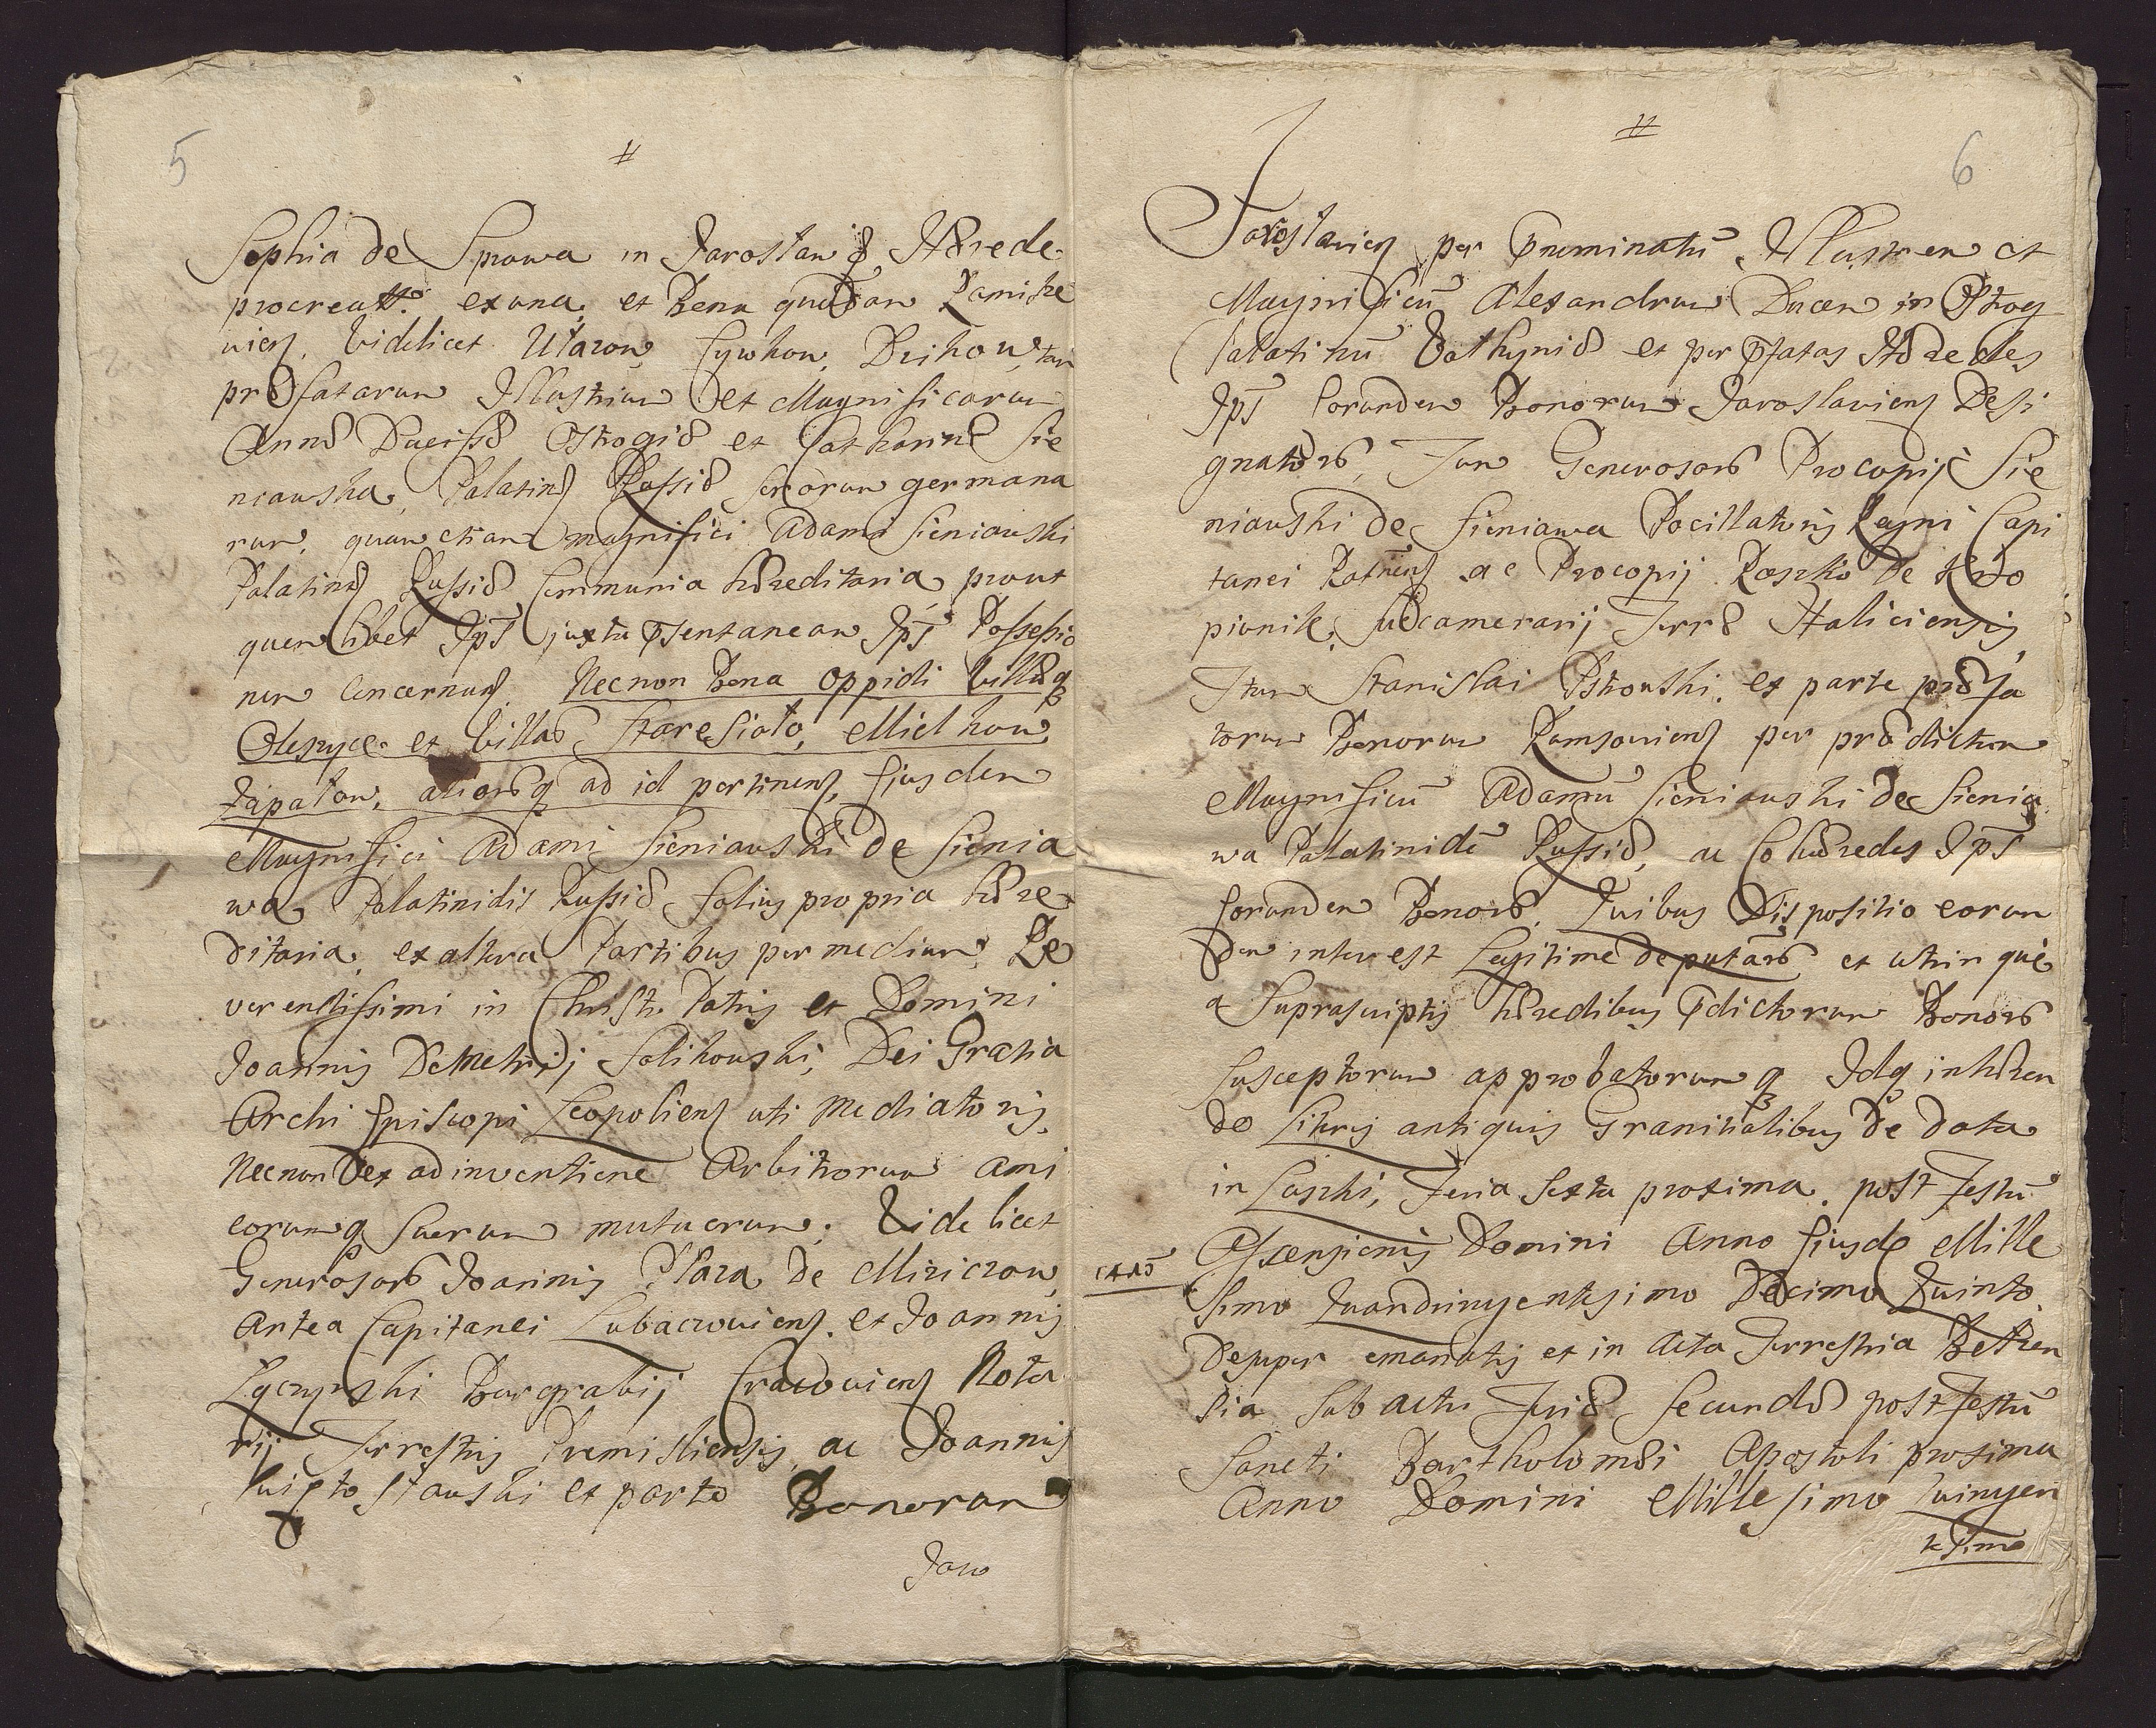 5
#
Sophia de Sprowa in Jaroslaw Hærede
procreatt. ex una, et Bona quædam Ramiże
viens. Videlicet Ułazow, Cywkow, Dzikow, tam
præfatarum Illustrium et Magnificarum
Annæ Ducissæ Ostrogiæ et Catharinæ Sie
niawska, Palatinæ Russiæ sororum germana
rum, quam etiam magnifici Adami Sieniawski
Palatinid Russiæ Communia hæreditaria, prout
quemlibet Ips juxta pñtaneam Ips Possessio
nem concernunt. Necnon Bona Oppidi villæq
Oleszyce et villas Staresioło, Mielkow
Zapałow, aliasq ad id pertinens, Ejusdem
Magnifici Adami Sieniawski de Sienia
wa Palatinidis Russiæ, solius propria hære
ditaria, ex altera Partibus per medium Re
verendissimi in Christo Patris et Domini
Joannis Demetrij Solikowski, Dei Gratia
Archi Episcopi Leopoliens uti mediatoris.
Necnon ex adinventione Arbitrorum Ami
corumq suorum mutuorum. Videlicet
Generosorum Joannis Płaza de Miziczow,
Antea Capitanei Lubaczoviens. et Joannis
Łączyński Burgrabij Cracoviens Nota
rij Terrestris Premisliensis, ac Joannis
Swiętosławski ex parte Bonorum
Jaro
#
6
Jaroslaviens per pnominatũ Illustrem et
Magnificũ Alexandrum Ducem in Ostrog
Palatinũ Volhyniæ et per pfatas Hæredes
Ips Eorundem Bonorum Jaroslaviens Desi
gnatorũ, Tum Generosorũ Procopij Sie
niawski de Sieniawa Pocillatoris Regni Capi
tanei Ratnens ac Procopij
pionik, Succamerarij Terræ Haliciensis,
Itum Stanislai Pstrowski, ex parte præfa
torum Bonorum Ramsoviens per prædictum
Magnificũ Adamũ Sieniawski de Sienia
wa Palatinidẽ Russiæ, ac Cohæredes Ips
Eorundem Bonorũ, Quibus Dispositio eorun
dem interest Legitime deputatorũ et utrinquè
a Suprascriptis hæredibus pdictorum Bonorũ
susceptorum approbatorumq Idq inhæren
do Litteris antiquis Granitialibus de data
in Laszki, Feria Sexta proxima, post Festũ
Ascensionis Domini Anno Ejusdẽ Mille
1415
simo Quandringentesimo Decimo Quinto
Desuper emanatis et in Acta Terrestria Bełzen
sia sub actu Feriæ Secundæ post Festũ
Sancti Bartholomæi Apostoli proxima
Anno Domini Millesimo Quingen
tesimo